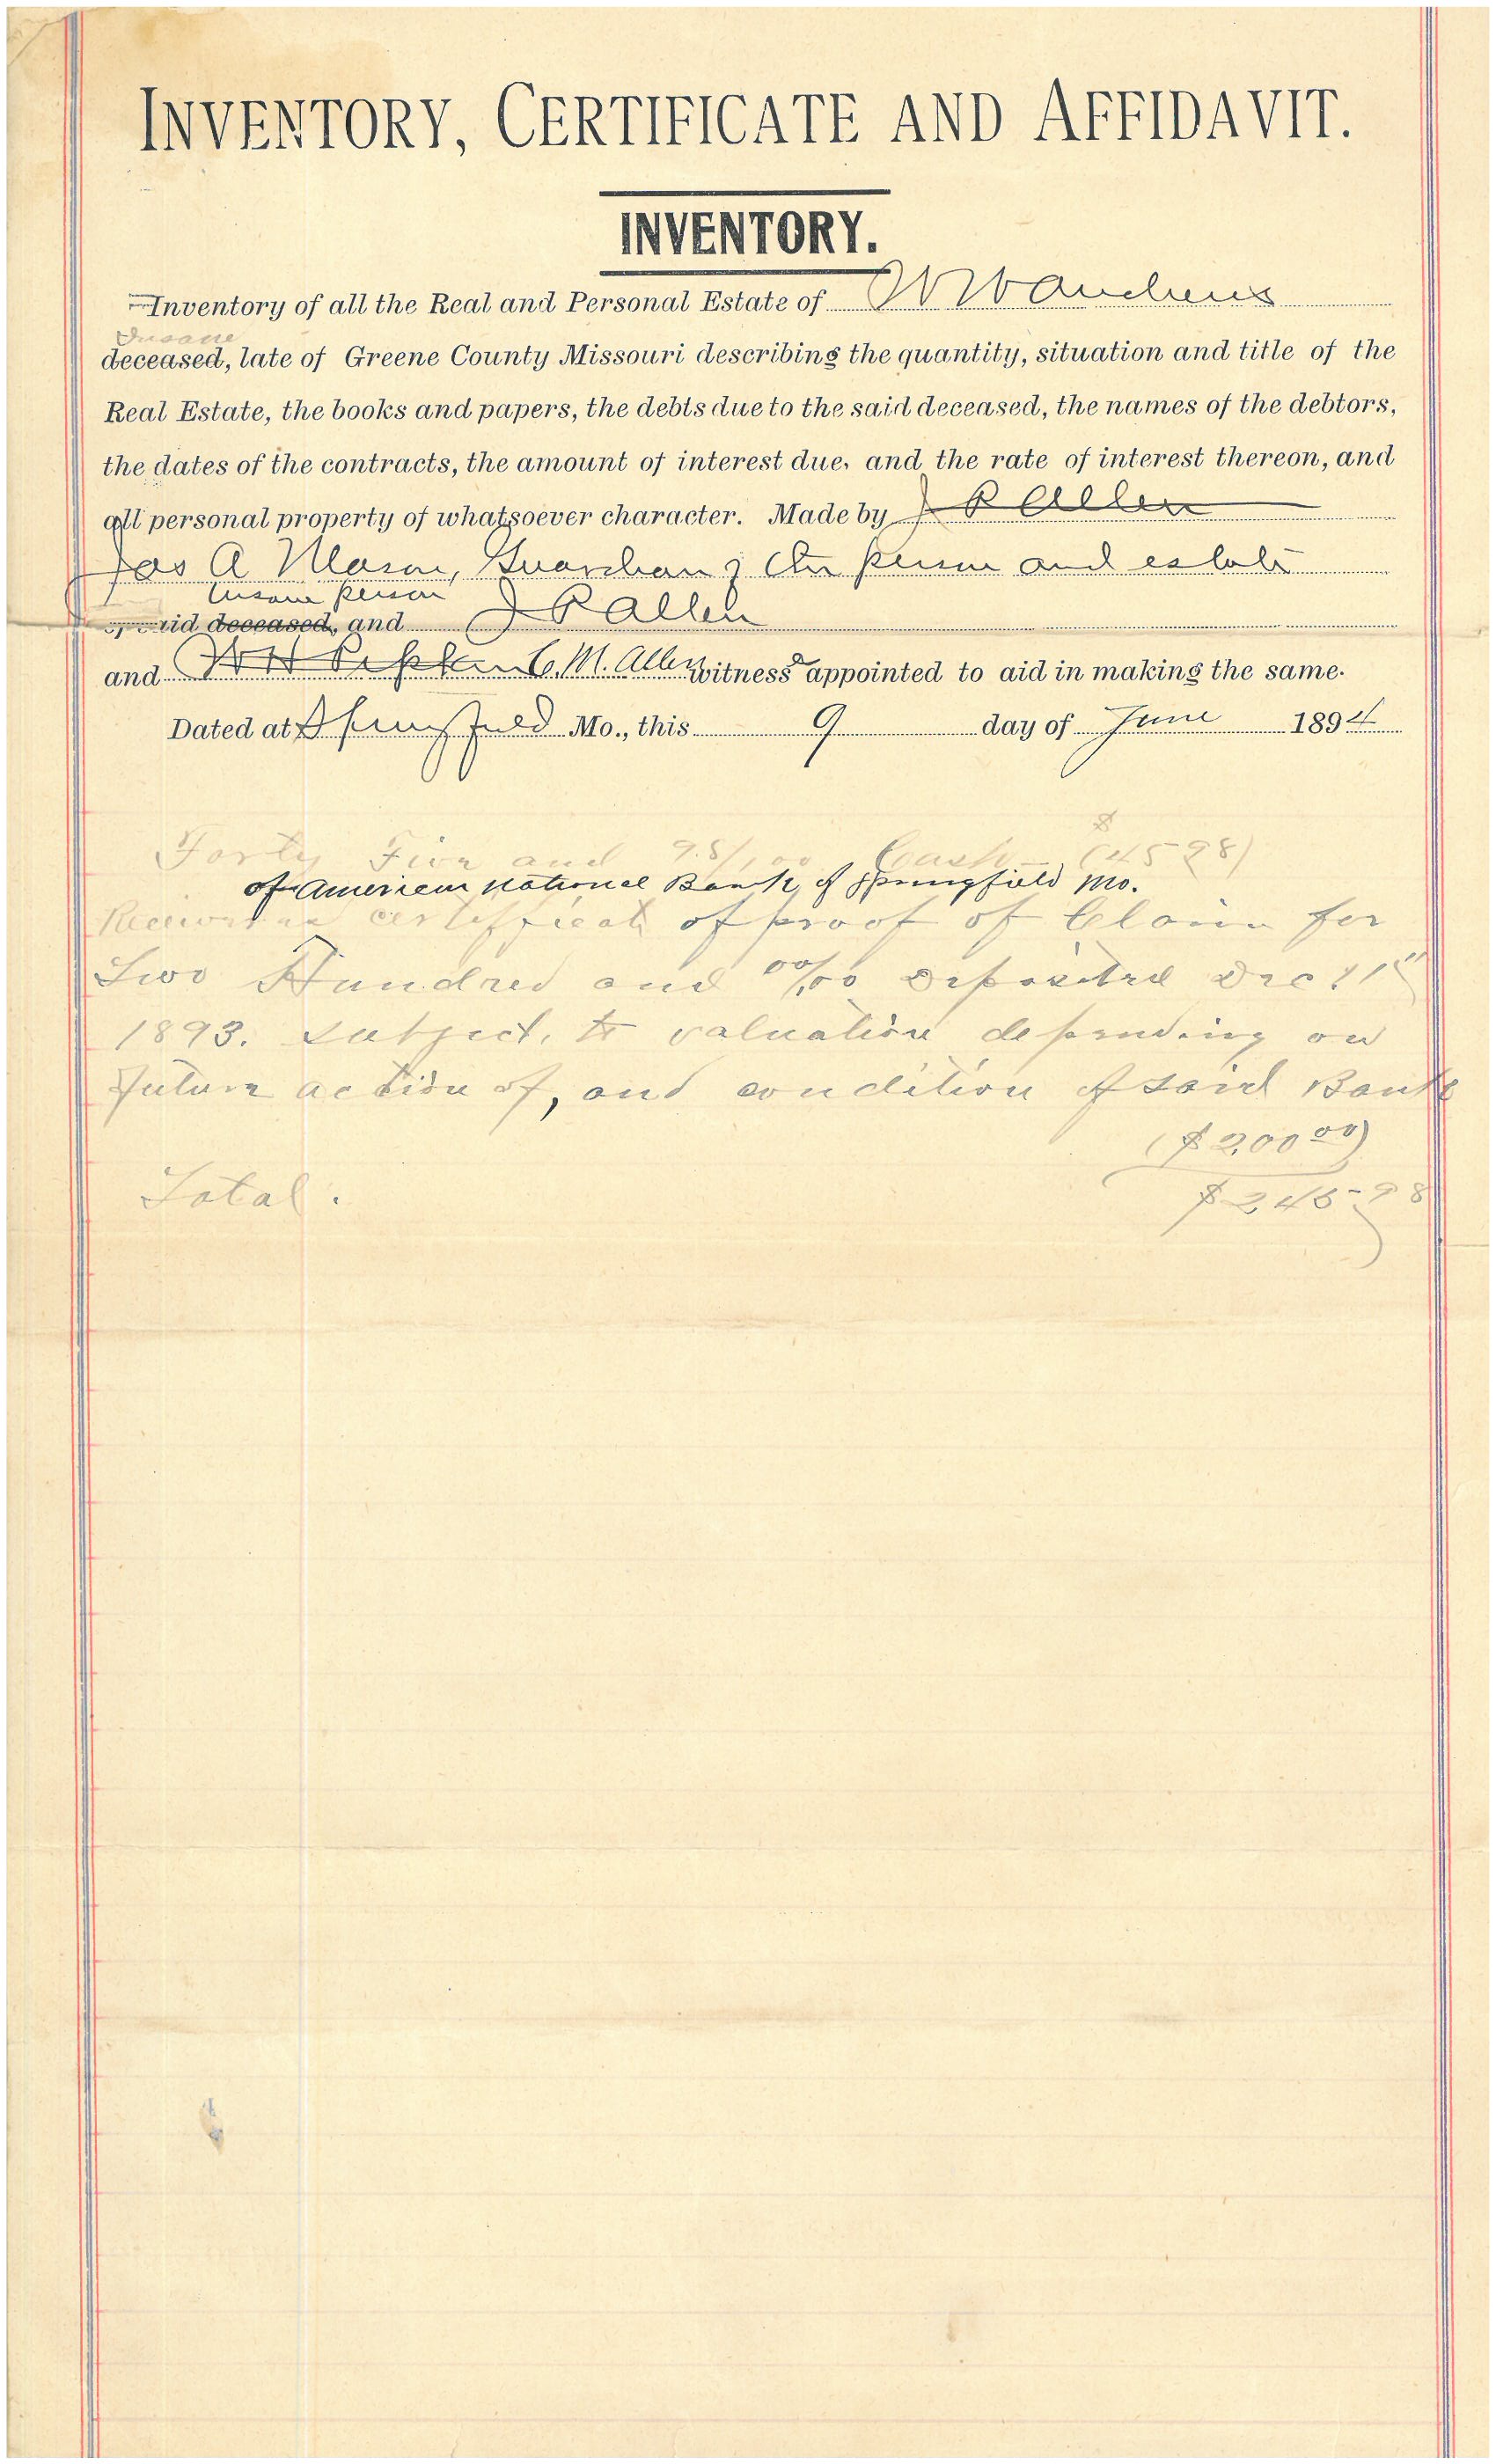 INVENTORY, CERTIFICATE AND AFFIDAVIT.
INVENTORY.
Inventory of all the Real and Personal Estate of
Insane
deceased, late of Greene County Missouri describing the quantity, situation and title of the
Real Estate, the books and papers, the debts due to the said deceased, the names of the debtors,
the dates of the contracts, the amount of interest due, and the rate of interest thereon, and
all personal property of whatsoever character. Made by J R Allen
Jas A Mason, Guardian of the person and estate
insane person
of said deceased, and J R Allen
and C. M. Allen witness appointed to aid in making the same.
Dated at Springfield Mo., this 9 day of June 1894
Forty Five and 98/100 Cash $ (45 98)
of American National Bank, of Springfield Mo.
Receivers certificate of proof of Claim for
Two Hundred and 00/100 deposited Dec 11"
1893. Subject, to valuation depending on
future action of, and condition of said Bank
($ 200 00)
Total. $ 245-98